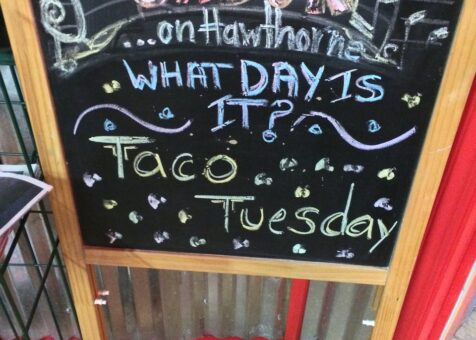 ...on Hawthorne
WHAT DAY IS
IT?
Taco
Tuesday